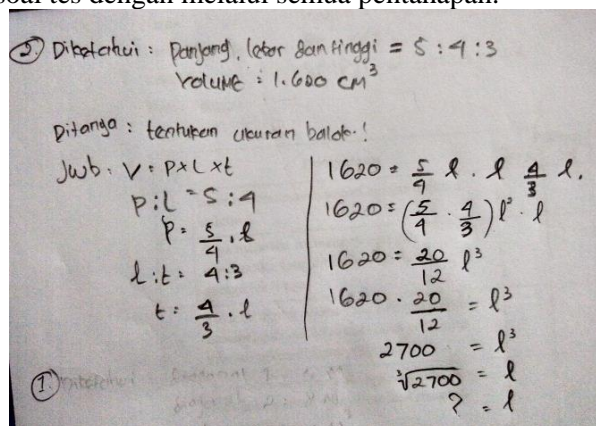 soal tes dengan melalui semua pentahapan.
5. Diketahui : Panjang, lebar dan tinggi = 5 : 4 : 3
Volume : 1.620 cm³
Ditanya : tentukan ukuran balok.!
Jwb : V = P x L x t
P : L = 5 : 4
P = 5/4 . l
l : t = 4 : 3
t = 4/3 . l
1620 = 5/4 l . l 4/3 l.
1620 = (5/4 . 4/3) l² . l
1620 = 20/12 l³
1620 . 20/12 = l³
2700 = l³
∛2700 = l
? = l
1. Diketahui